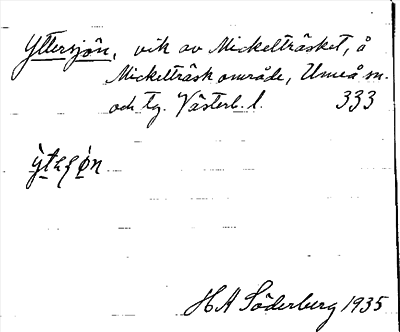 Yttersjön, vik av Mickelträsket, å
Mickelträsk område, Umeå sn.
och tg. Västerb. l. 333
H A Söderberg 1935